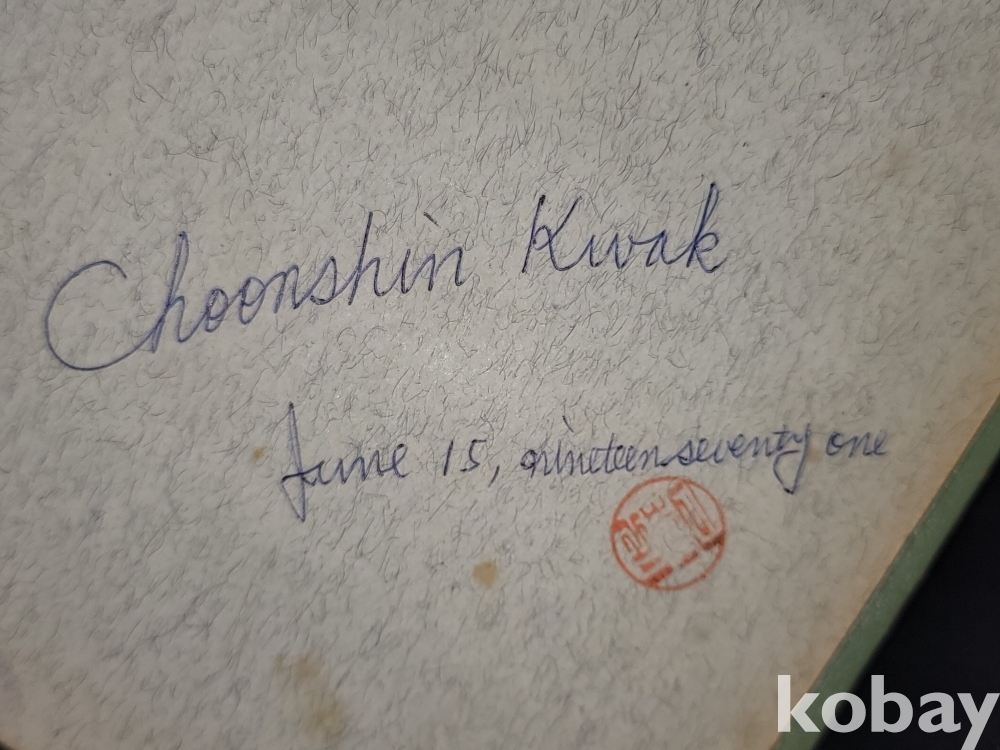 Choonshin Kwak
June 15, nineteen seventy one
kobay